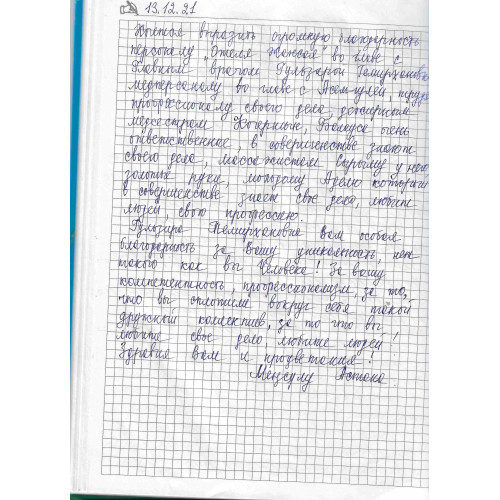 13.12.21
Хочется выразить огромную благодарность
персоналу "Отеля Жансая" во главе с
Главным врачом Гульзарой Темирхановн
медперсоналу во главе с Асем-гулей,
профессионалу своего дела дежурным
медсестрам Ботагөз очень
ответственное, в совершенстве знают
своего дела, массажистам у него
золотые руки, молодому Адлю который
в совершенстве знает свое дело, любит
людей свою профессию.
Гульзара Темирхановна вам особая
благодарность за вашу уникальность, нет
такого как вы человека! За вашу
компетентность, профессионализм, за то,
что вы сплотили вокруг себя такой
дружный коллектив, за то что вы
любите свое дело, любите людей!
Здравия вам и процветания!
Меңсулу Астана.